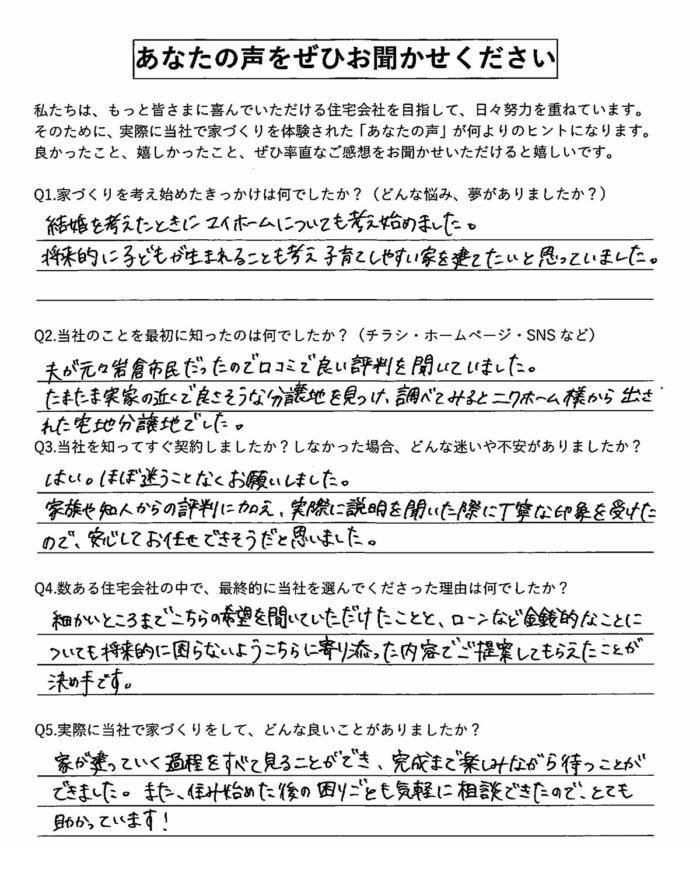 あなたの声をぜひお聞かせください
私たちは、もっと皆さまに喜んでいただける住宅会社を目指して、日々努力を重ねています。
そのために、実際に当社で家づくりを体験された「あなたの声」が何よりのヒントになります。
良かったこと、嬉しかったこと、ぜひ率直なご感想をお聞かせいただけると嬉しいです。
Q1.家づくりを考え始めたきっかけは何でしたか？（どんな悩み、夢がありましたか？）
結婚を考えたときにマイホームについても考え始めました。
将来的に子どもが生まれることも考え子育てしやすい家を建てたいと思っていました。
Q2.当社のことを最初に知ったのは何でしたか？（チラシ・ホームページ・SNS など）
夫が元々岩倉市民だったので口コミで良い評判を聞いていました。
たまたま実家の近くで良さそうな分譲地を見つけ、調べてみるとニワホーム様から出さ
れた宅地分譲地でした。
Q3.当社を知ってすぐ契約しましたか？しなかった場合、どんな迷いや不安がありましたか？
はい。ほぼ迷うことなくお願いしました。
家族や知人からの評判に加え、実際に説明を聞いた際に丁寧な印象を受けた
ので、安心してお任せできそうだと思いました。
Q4.数ある住宅会社の中で、最終的に当社を選んでくださった理由は何でしたか？
細かいところまでこちらの希望を聞いていただけたことと、ローンなど金銭的なことに
ついても将来的に困らないようこちらに寄り添った内容でご提案してもらえたことが
決め手です。
Q5.実際に当社で家づくりをして、どんな良いことがありましたか？
家が建っていく過程をすべて見ることができ、完成まで楽しみながら待つことが
できました。また、住み始めた後の困りごとも気軽に相談できたので、とても
助かっています！